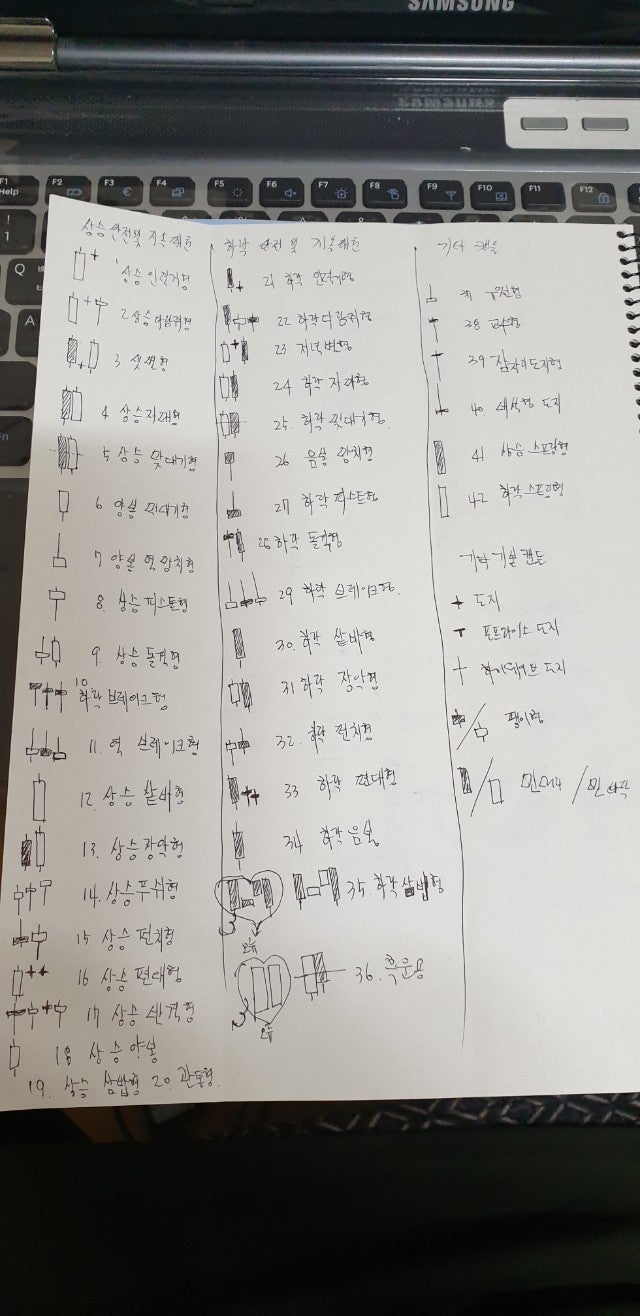 SAMSUNG
F1 Help
F2
F3
F4
F5
F6
F7
F8
F9
F10
F11
F12
!
1
Q
A
Fn
상승 반전 및 지속패턴
1 상승 인력거형
2 상승 다람쥐형
3 샛별형
4 상승 지래형
5 상승 맞대기형
6 양봉 망치형
7 양봉 역망치형
8. 상승 피스톨형
9. 상승 돌격형
10 하락 브레이크형
11. 역 브레이크형
12. 상승 샅바형
13. 상승 장악형
14. 상승 푸쉬형
15 상승 펀치형
16 상승 연대형
17 상승 산격형
18 상승 양봉
19. 상승 삼법형 20. 관통형.
하락 반전 및 지속패턴
21 하락 인력거형
22 하락 다람쥐형
23 저녁별형
24 하락 지래형
25. 하락 맞대기형
26 음봉 망치형
27 하락 피스톨형
28 하락 돌격형
29 하락 브레이크형.
30. 하락 샅바형
31 하락 장악형
32. 하락 펀치형
33 하락 연대형
34 하락 음봉
35. 하락 삼법형
오류
36. 흑운형
오류
기타 캔들
37 우산형
38 교수형
39 잠자리 도지형
40 비석형 도지
41 상승 스프링형
42 하락 스프링형
기타 기술 캔들
도지
포프라이스 도지
하이웨이브 도지
팽이형
민머리 / 민바닥